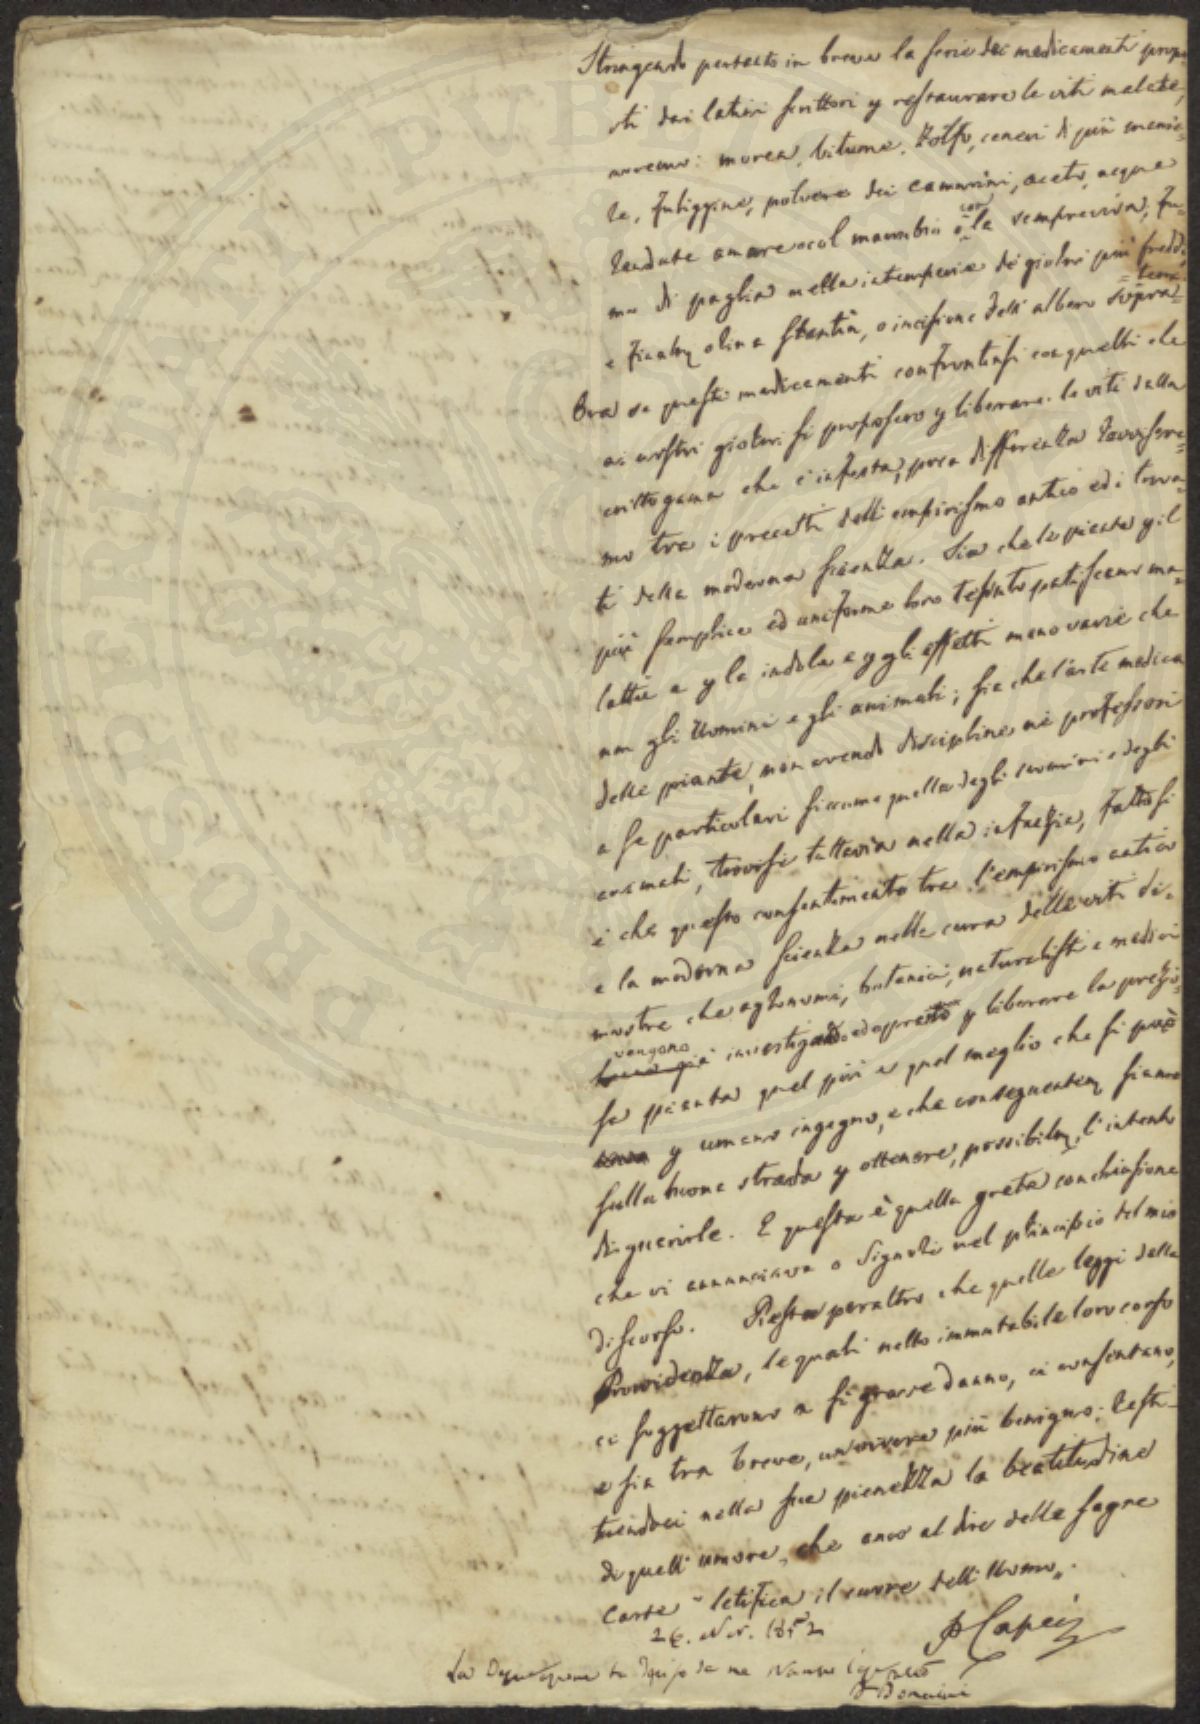 Stringendo pertanto in breve la serie dei medicamenti propo-
sti dai latini scrittori p restaurare le viti malate,
avremo: morea, bitume, Zolfo, ceneri di più manie-
re, fuliggine, polvere dei cammini, aceto, acqua
amare col marrubio con la sempreviva, fu-
mo di paglia nella intemperie dei giorni più freddi
terra
e orina stantia, o incisione dell'albero sopra
Ora se questi medicamenti confrontinsi con quelli che
ai nostri giorni si proposero p liberare le viti dalla
crittogama che c'infesta, poca differenza trovere-
mo tra i precetti dell'empirismo antico ed i trova-
ti della moderna scienza. Sia che le piante p il
più semplice ed uniforme loro tessuto patiscano ma-
lattie e p le indole e p gli effetti meno varie che
non gli Uomini e gli animali; sia che l'arte medica
delle piante, non avendo discipline nè professori
a se particolari siccome quella degli uomini e degli
animali, trovisi tuttavia nella infanzia, fatto si
è che questo consentimento tra l'empirismo antico
e la moderna scienza nelle cura delle viti di-
mostra che agronomi, botanici, naturalisti e medici
vengano investigando p liberare la prezio-
sa pianta quel più e quel meglio che si può
p umano ingegno, e che conseguentem siamo
sulla buona strada p ottenere, possibilm, l'intento
di guerirle. E questa è quella grata conchiusione
che vi annunciava o Signori nel principio del mio
discorso. Resta peraltro che quelle leggi della
Provvidenza, le quali nello immutabile loro corso
ci soggettarono a si grave danno, ci consentano,
e sia tra breve, un vivere più benigno; resti-
tuendoci nella sua pienezza la beatitudine
di quell'umore, che anco al dire delle sagre
Carte "letifica il cuore dell'Uomo".
26. Nov. 1852
P Capei
La
da me
Domenico